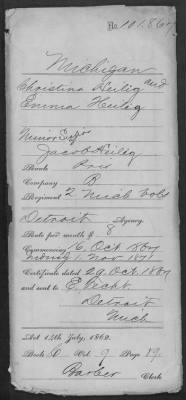 No. 101.864
Michigan
Christina Heilig and
Emma Heilig
Minor
Jacob Heilig
Rank Priv
Company B
Regiment 2 Mich Vols
Detroit Agency.
Rate per month $ 8
Commencing 6, Oct 1864
ending 1 Nov 1871
Certificate dated 29 Oct 1867
and sent to E,
Detroit
Mich
Act 14th July, 1862.
Book D Vol. 9 Page 19.
Barber Clerk